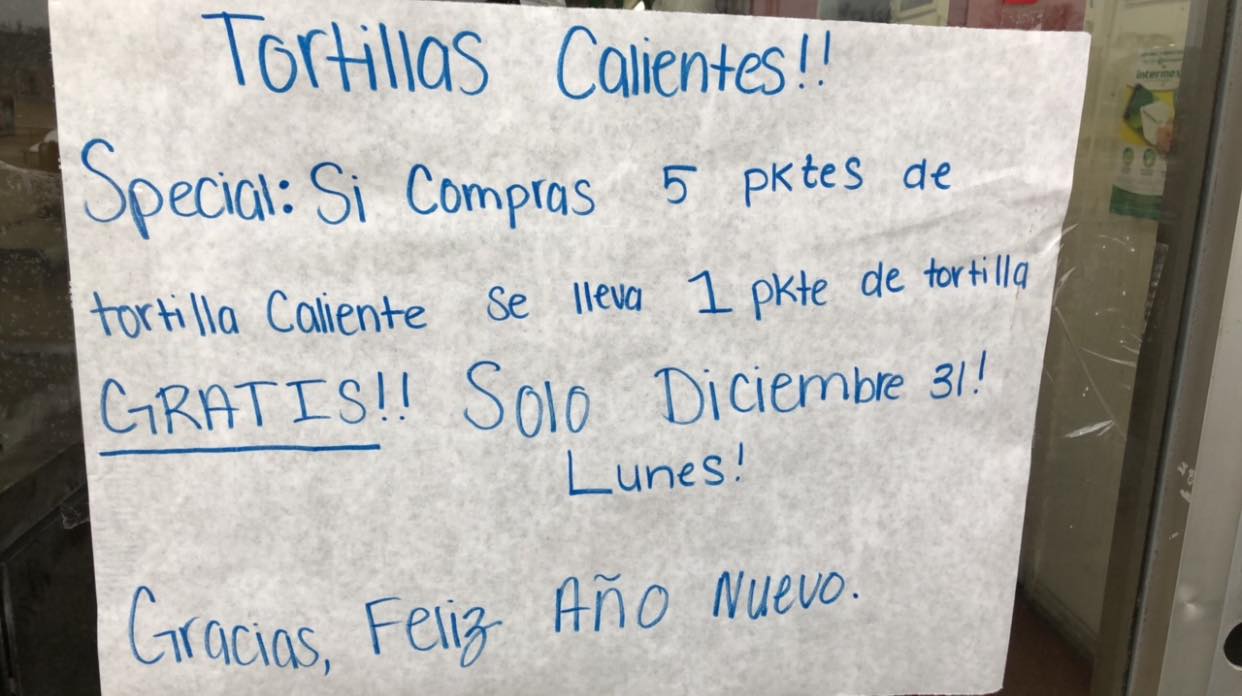 Tortillas Calientes!!
Special: Si Compras 5 pktes de
tortilla Caliente se lleva 1 pkte de tortilla
GRATIS!! Solo Diciembre 31!
Lunes!
Gracias, Feliz Año Nuevo.
intermex